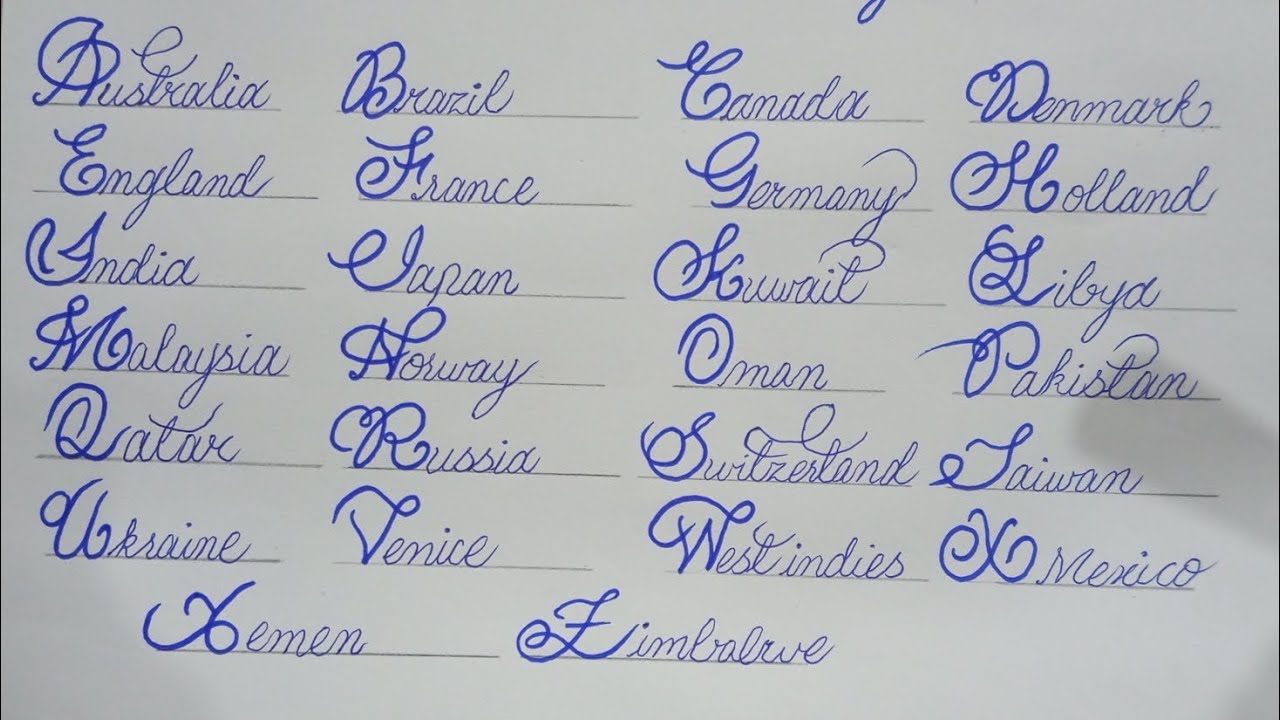 Australia Brazil Canada Denmark
England France Germany Holland
India Japan Kuwait Libya
Malaysia Norway Oman Pakistan
Qatar Russia Switzerland Taiwan
Ukraine Venice West indies X Mexico
Yemen Zimbabwe